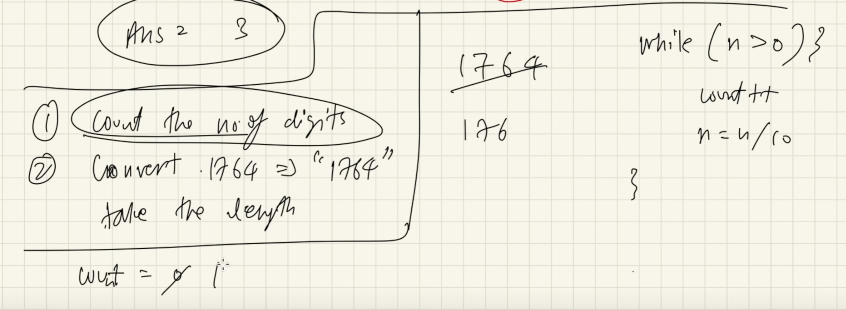 Ans = 3
① Count the no. of digits
② Convert 1764 => "1764"
take the length
count = 0 1
1764
176
while (n>0) {
count++
n = n/10
}